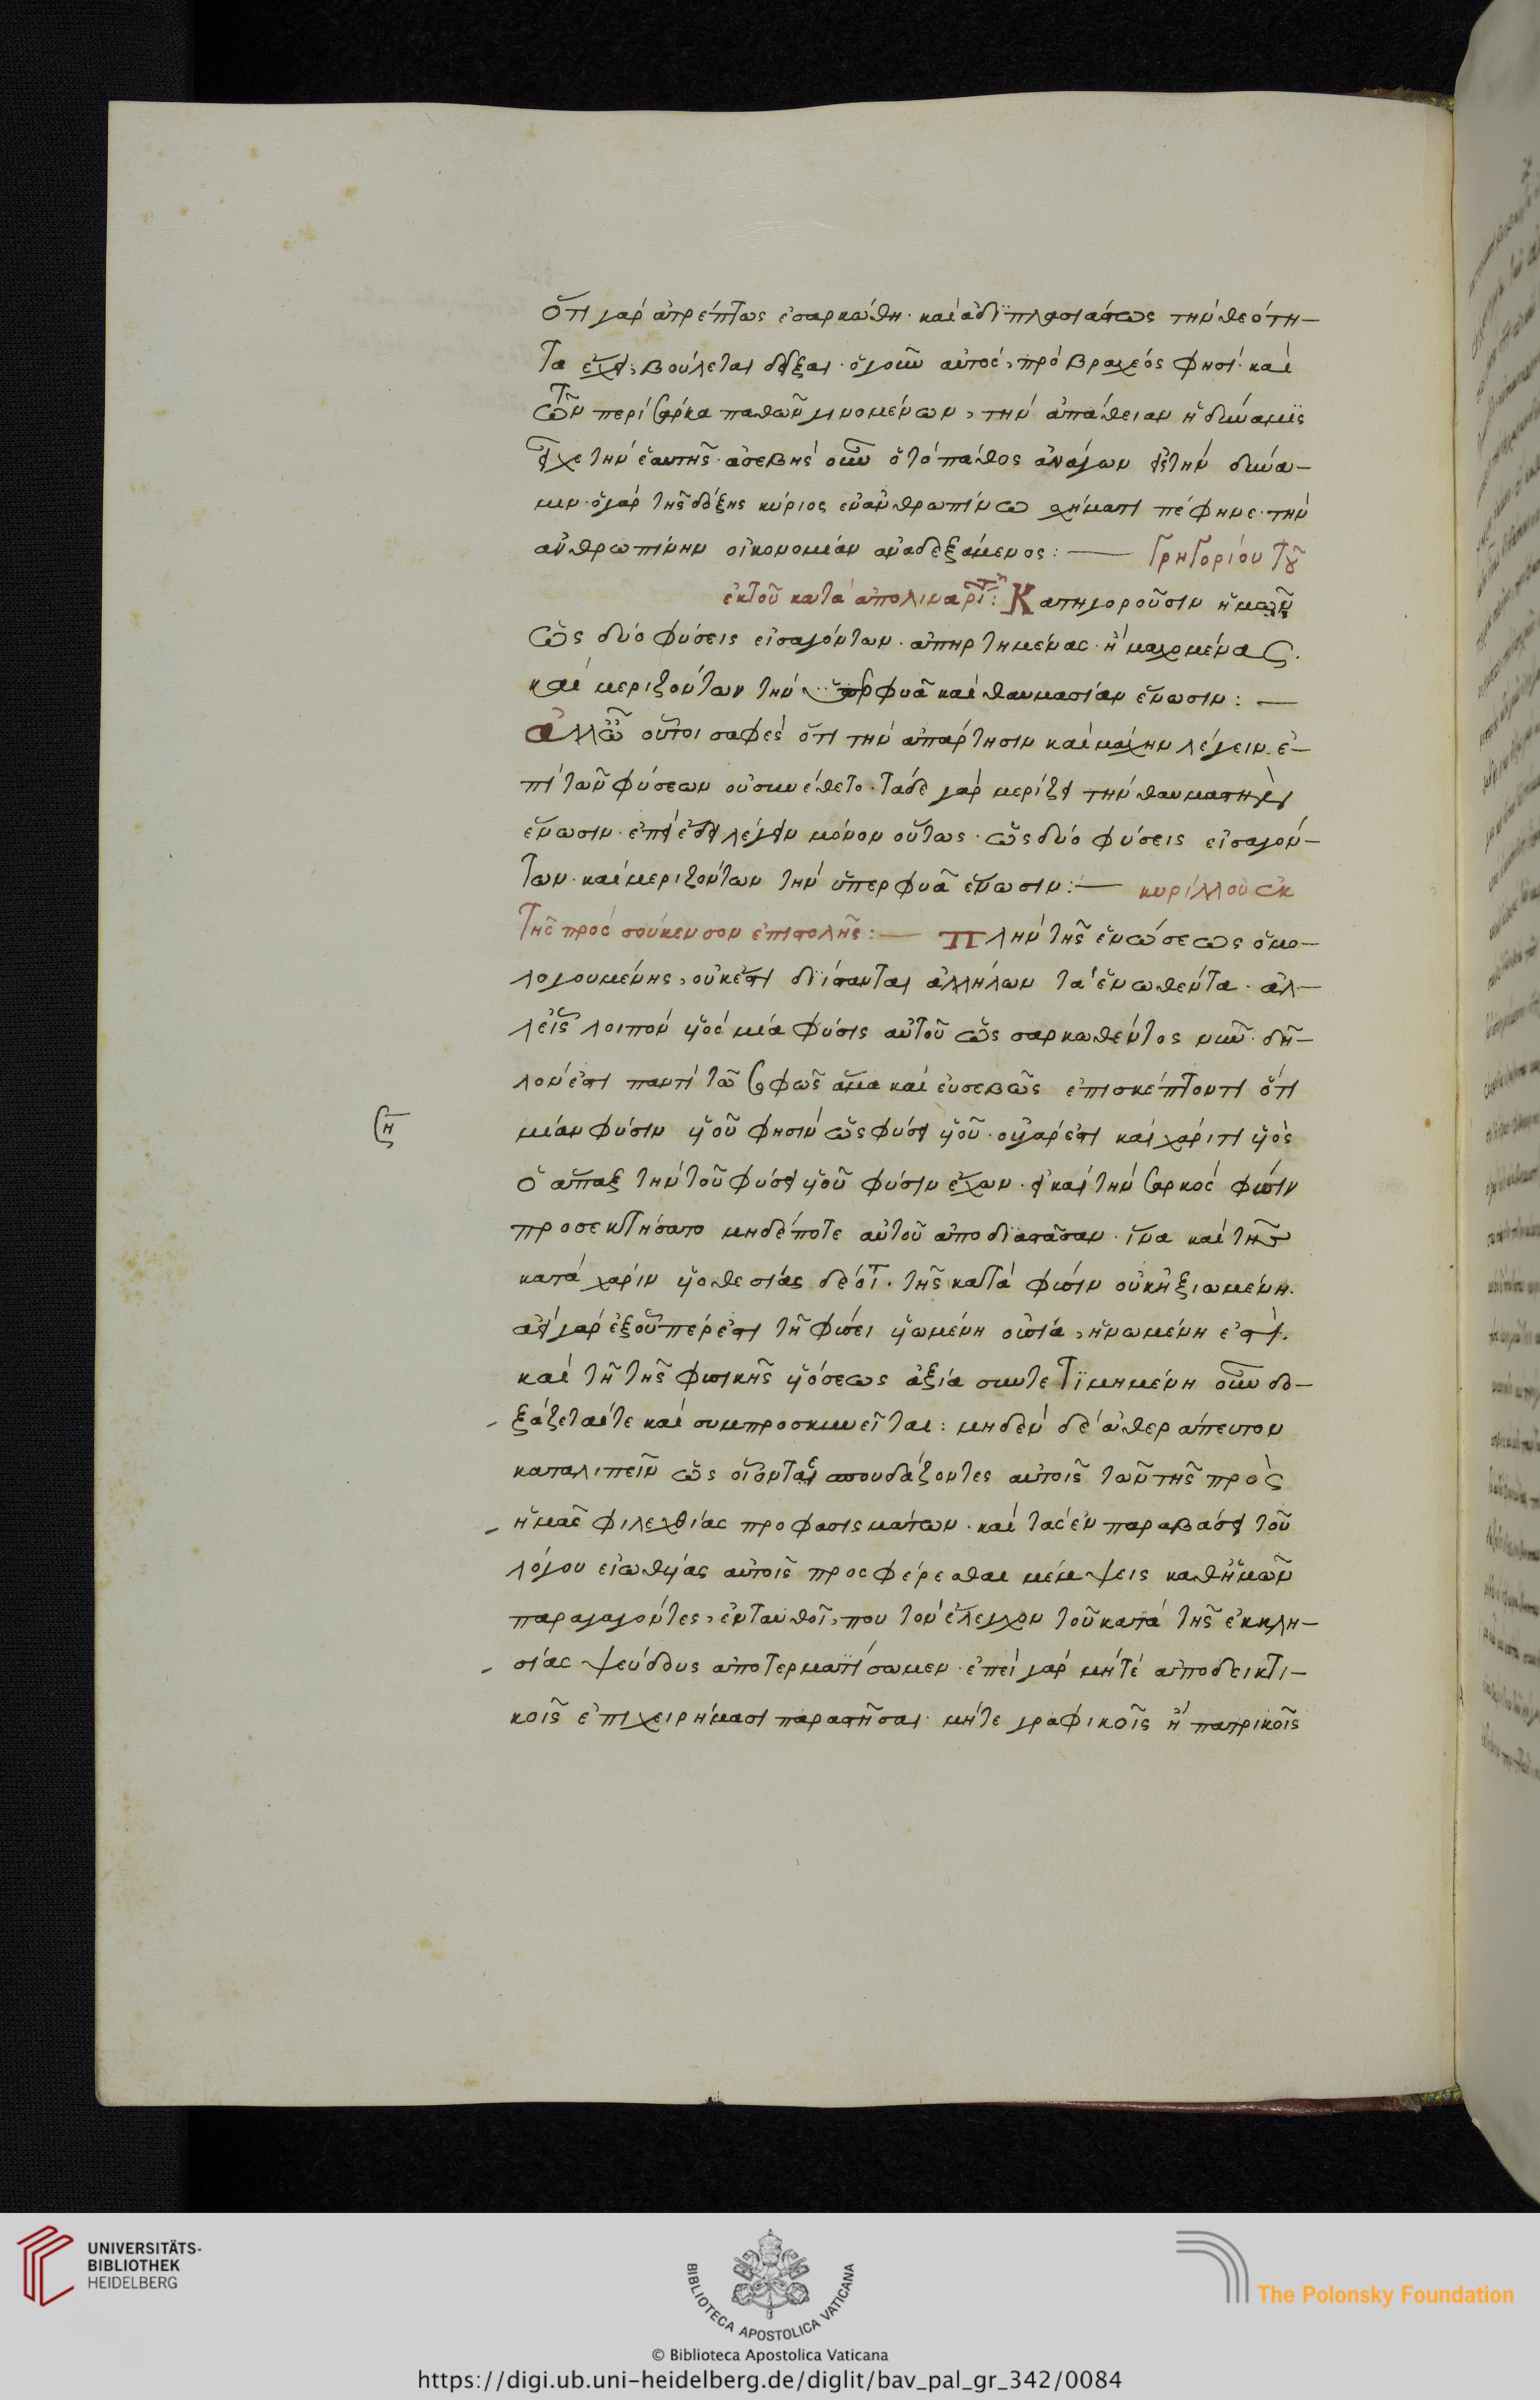 Ὅτι γὰρ ἀτρέπτως ἐσαρκώθη· καὶ ἀδιπλασιάστως τὴν θεότη-
τα ἔχει, βούλεται δεῖξαι· ὁ γοῦν αὐτὸς, πρὸ βραχέος φησί· καὶ
τῶν περὶ σάρκα παθῶν γινομένων, τὴν ἀπάθειαν ἡ δύναμϊς
εἶχε τὴν ἑαυτῆς· ἀσεβὴς οὖν ὁ τὸ πάθος ἀνάγων εἰς τὴν δύνα-
μιν· ὁ γὰρ τῆς δόξης κύριος ἐν ἀνθρωπίνω σχήματι πέφηνε· τὴν
ἀνθρωπίνην οἰκονομίαν ἀναδεξάμενος: — Γρηγορίου τοῦ
ἐκ τοῦ κατὰ ἀπολιναρι: Κατηγοροῦσιν ἡμῶν
ὡς δύο φύσεις εἰσαγόντων· ἀπηρτημένας· ἢ μαχομένας.
καὶ μεριζόντων τὴν ὑπερφυᾶ καὶ θαυμασίαν ἕνωσιν: —
ἀλλ' οὗτοι σαφὲς ὅτι τὴν ἀπάρτησιν καὶ μάχην λέγειν· ἐ-
πὶ τῶν φύσεων οὐ συνέθετο· τάδε γὰρ μερίζει τὴν θαυμαστὴν
ἕνωσιν· ἐπεὶ ἔδει λέγειν μόνον οὕτως· ὡς δύο φύσεις εἰσαγόν-
των· καὶ μεριζόντων τὴν ὑπερφυᾶ ἕνωσιν: — κυρίλλου ἐκ
τῆς πρὸς σούκενσον ἐπιστολῆς: — Πλὴν τῆς ἑνώσεως ὁμο-
λογουμένης, οὐκέτι διίστανται ἀλλήλων τὰ ἑνωθέντα· ἀλ-
λ' εἷς λοιπὸν υἱὸς μία φύσις αὐτοῦ ὡς σαρκωθέντος νῦν· δῆ-
λον ἐστι παντὶ τῶ σοφῶς ἅμα καὶ εὐσεβῶς ἐπισκέπτοντι ὅτι
μίαν φύσιν υἱοῦ φησὶν ὡς φύσει υἱοῦ· οὐ γάρ ἐστι καὶ χάριτι υἱὸς
ὁ ἅπαξ τὴν τοῦ φύσει υἱοῦ φύσιν ἔχων· εἰ καὶ τὴν σαρκὸς φύσιν
προσεκτήσατο μηδέποτε αὐτοῦ ἀποδιαστᾶσαν· ἵνα καὶ τῆς
κατὰ χάριν υἱοθεσίας δέοιτ· τῆς κατὰ φύσιν οὐκ ἠξιωμένη.
ἀεὶ γὰρ ἐξ οὗπέρ ἐστι τῆ φύσει υἱωμένη οὐσία, ἡνωμένη ἐστὶ.
καὶ τῆ τῆς φυσικῆς υἱόσεως ἀξία συντετϊμημένη οὖν δο-
ξάζεταίτε καὶ συμπροσκυνεῖται: μηδὲν δὲ ἀθεράπευτον
καταλιπεῖν ὡς οἷόντε σπουδάζοντες αὐτοῖς τῶν τῆς πρὸς
ἡμᾶς φιλεχθίας προφασισμάτων· καὶ τὰς ἐν παραβάσει τοῦ
λόγου εἰωθυίας αὐτοῖς προσφέρεσθαι μέμψεις καθ' ἡμῶν
παραγαγόντες, ἐνταυθοῖ, που τὸν ἔλεγχον τοῦ κατὰ τῆς ἐκκλη-
σίας ψεύδους ἀποτερματίσωμεν· ἐπεὶ γὰρ μήτε ἀποδεικτι-
κοῖς ἐπιχειρήμασι παραστῆσαι· μήτε γραφικοῖς ἢ πατρικοῖς
UNIVERSITÄTS-
BIBLIOTHEK
HEIDELBERG
BIBLIOTECA APOSTOLICA VATICANA
The Polonsky Foundation
© Biblioteca Apostolica Vaticana
https://digi.ub.uni-heidelberg.de/diglit/bav_pal_gr_342/0084